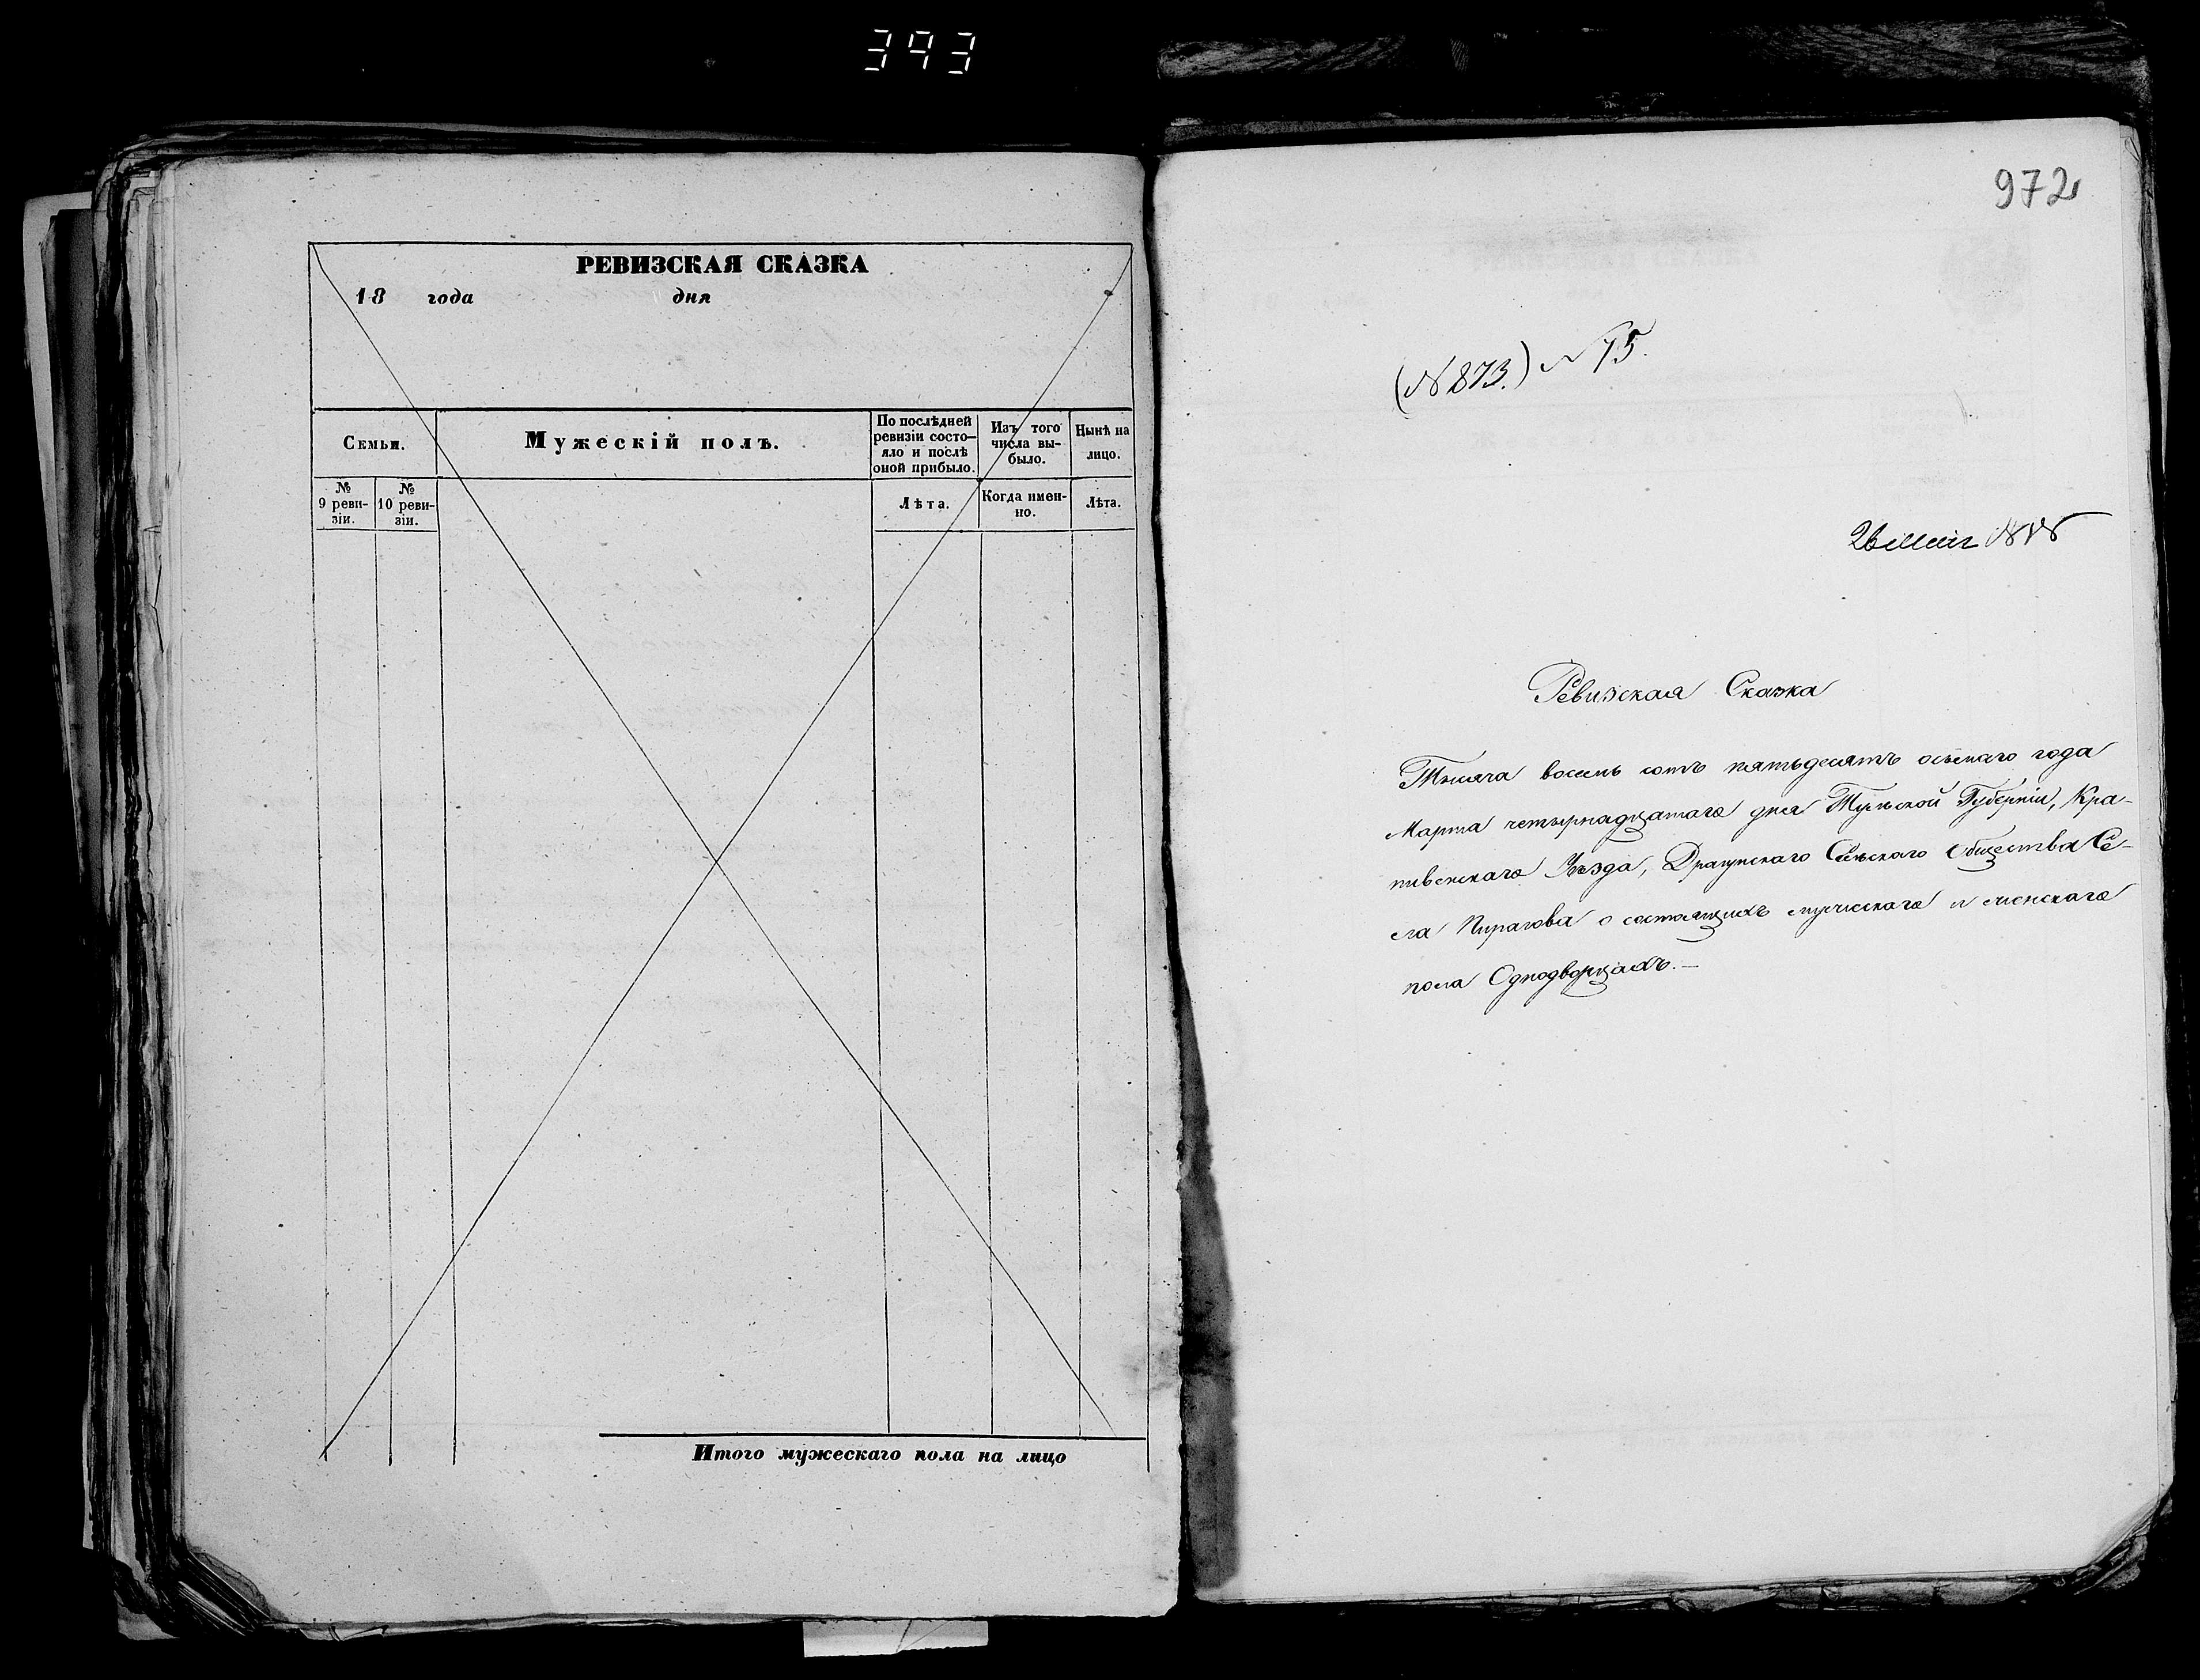 393
РЕВИЗСКАЯ СКАЗКА
18 года дня
Семьи.
Мужескій полъ.
По послѣдней ревизіи состо-яло и послѣ оной прибыло.
Изъ того числа вы-было.
Нынѣ на лицо.
№ 9 реви-зіи.
№ 10 реви-зіи.
Лѣта.
Когда имен-но.
Лѣта.
Итого мужескаго пола на лицо
972
(№ 873.) № 75.
26 Маія
Ревизская Сказка
Тысяча восемь сотъ пятьдесятъ осьмаго года
Марта четырнадцатаго дня Тульской Губерніи, Кра-
пивенскаго Уѣзда, Драгунскаго Сельскаго Общества Се-
ла Пирагова о состоящихъ мужескаго и женскаго
пола Однодворцахъ.—